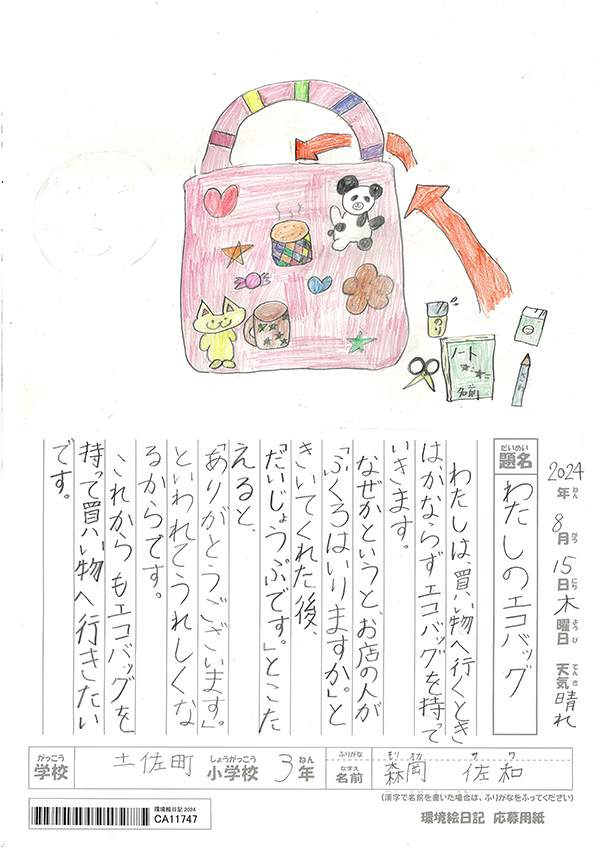 のり
ノート
名前
2024年ねん 8月がつ 15日にち 木曜日ようび 天気てんき 晴れ
だいめい
題名
わたしのエコバッグ
わたしは、買い物へ行くとき
は、かならずエコバッグを持って
いきます。
なぜかというと、お店の人が
「ふくろはいりますか。」と
きいてくれた後、
「だいじょうぶです。」とこた
えると、
「ありがとうございます。」
といわれてうれしくな
るからです。
これからもエコバッグを
持って買い物へ行きたい
です。
がっこう しょうがっこう ねん ふりがな モリ オカ サ ワ
学校 土佐町 小学校 3年 なまえ 名前 森岡 佐和
(漢字で名前を書いた場合は、ふりがなをふってください)
環境絵日記 応募用紙
環境絵日記2024
CA11747